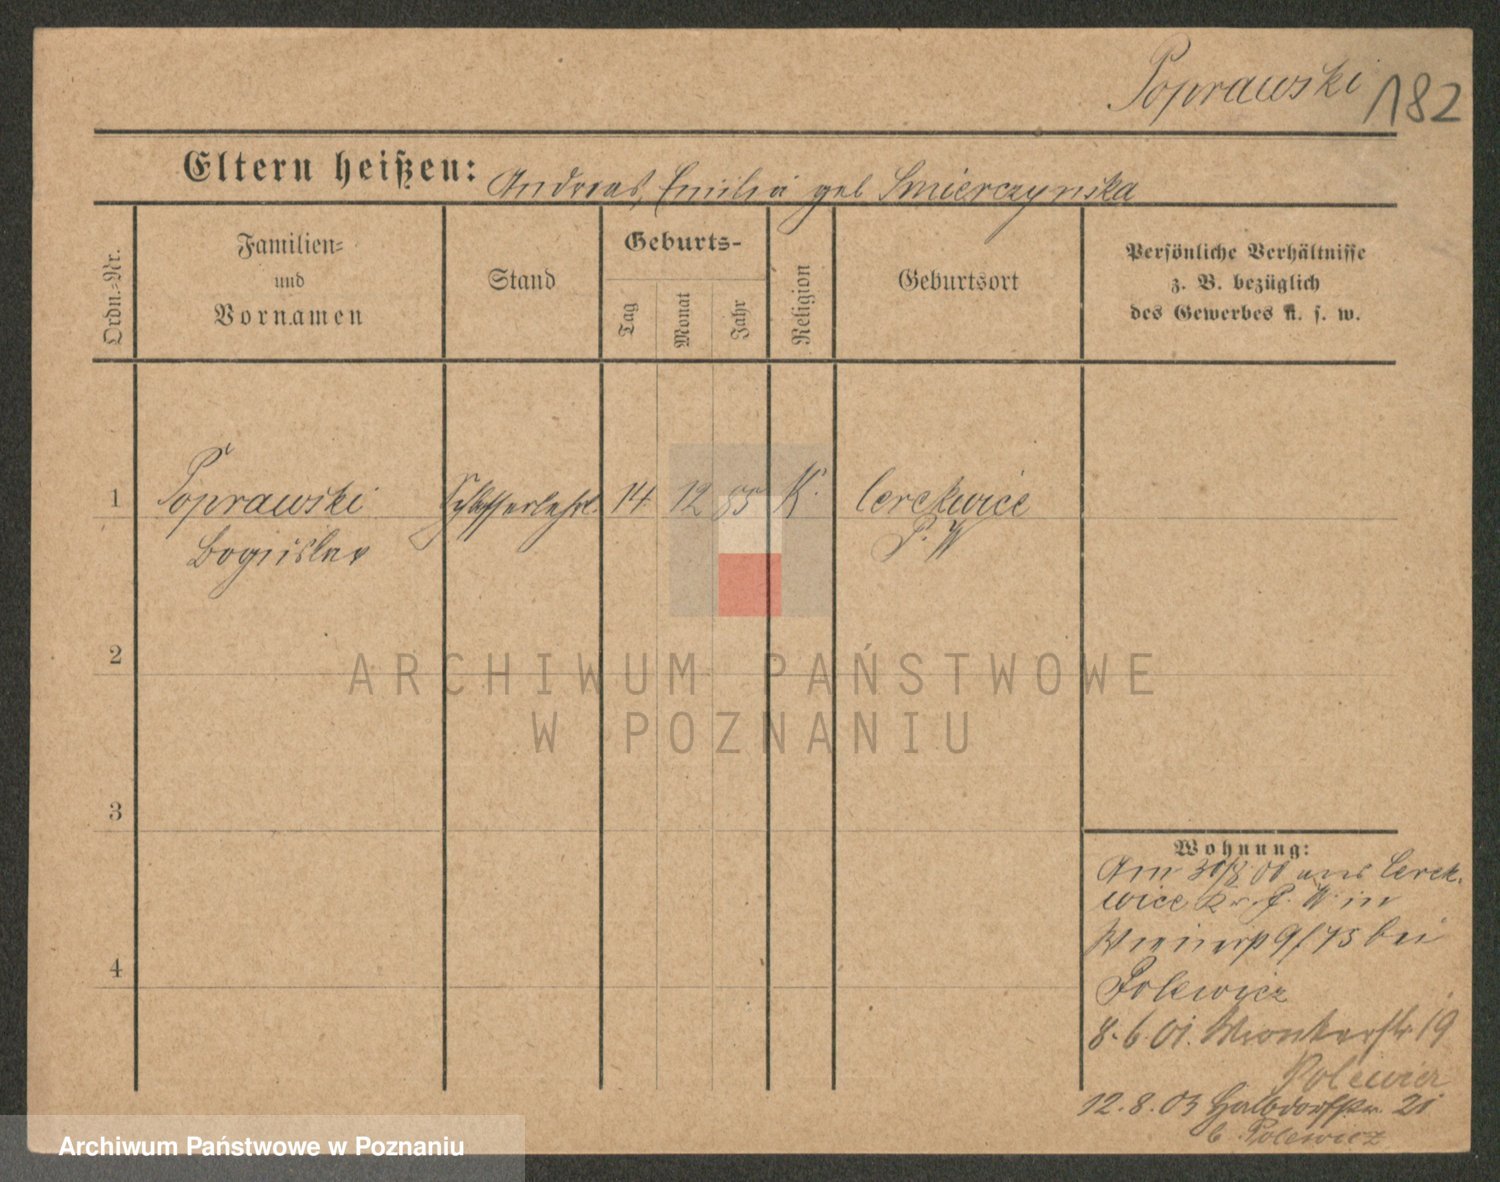 Poprawski 182
Eltern heißen: Andreas, Emilia geb Smierczynska
Ordn.-Nr.
Familien-
und
Vornamen
Stand
Geburts-
Tag
Monat
Jahr
Religion
Geburtsort
Persönliche Verhältnisse
z. B. bezüglich
des Gewerbes u. s. w.
1 Poprawski Schlosserlehrl. 14 12 85 K. Cerekwice
Boguslav P. W
2
3
4
Wohnung:
Am 30/8 00 aus Cerek-
wice Kr. P. W. in
9/75 bei
Polewicz
8.6.01. Wronkerstr 19
Polewicz
12.8.03 Halbdorfstr. 21
b. Polewicz
ARCHIWUM PAŃSTWOWE
W POZNANIU
Archiwum Państwowe w Poznaniu